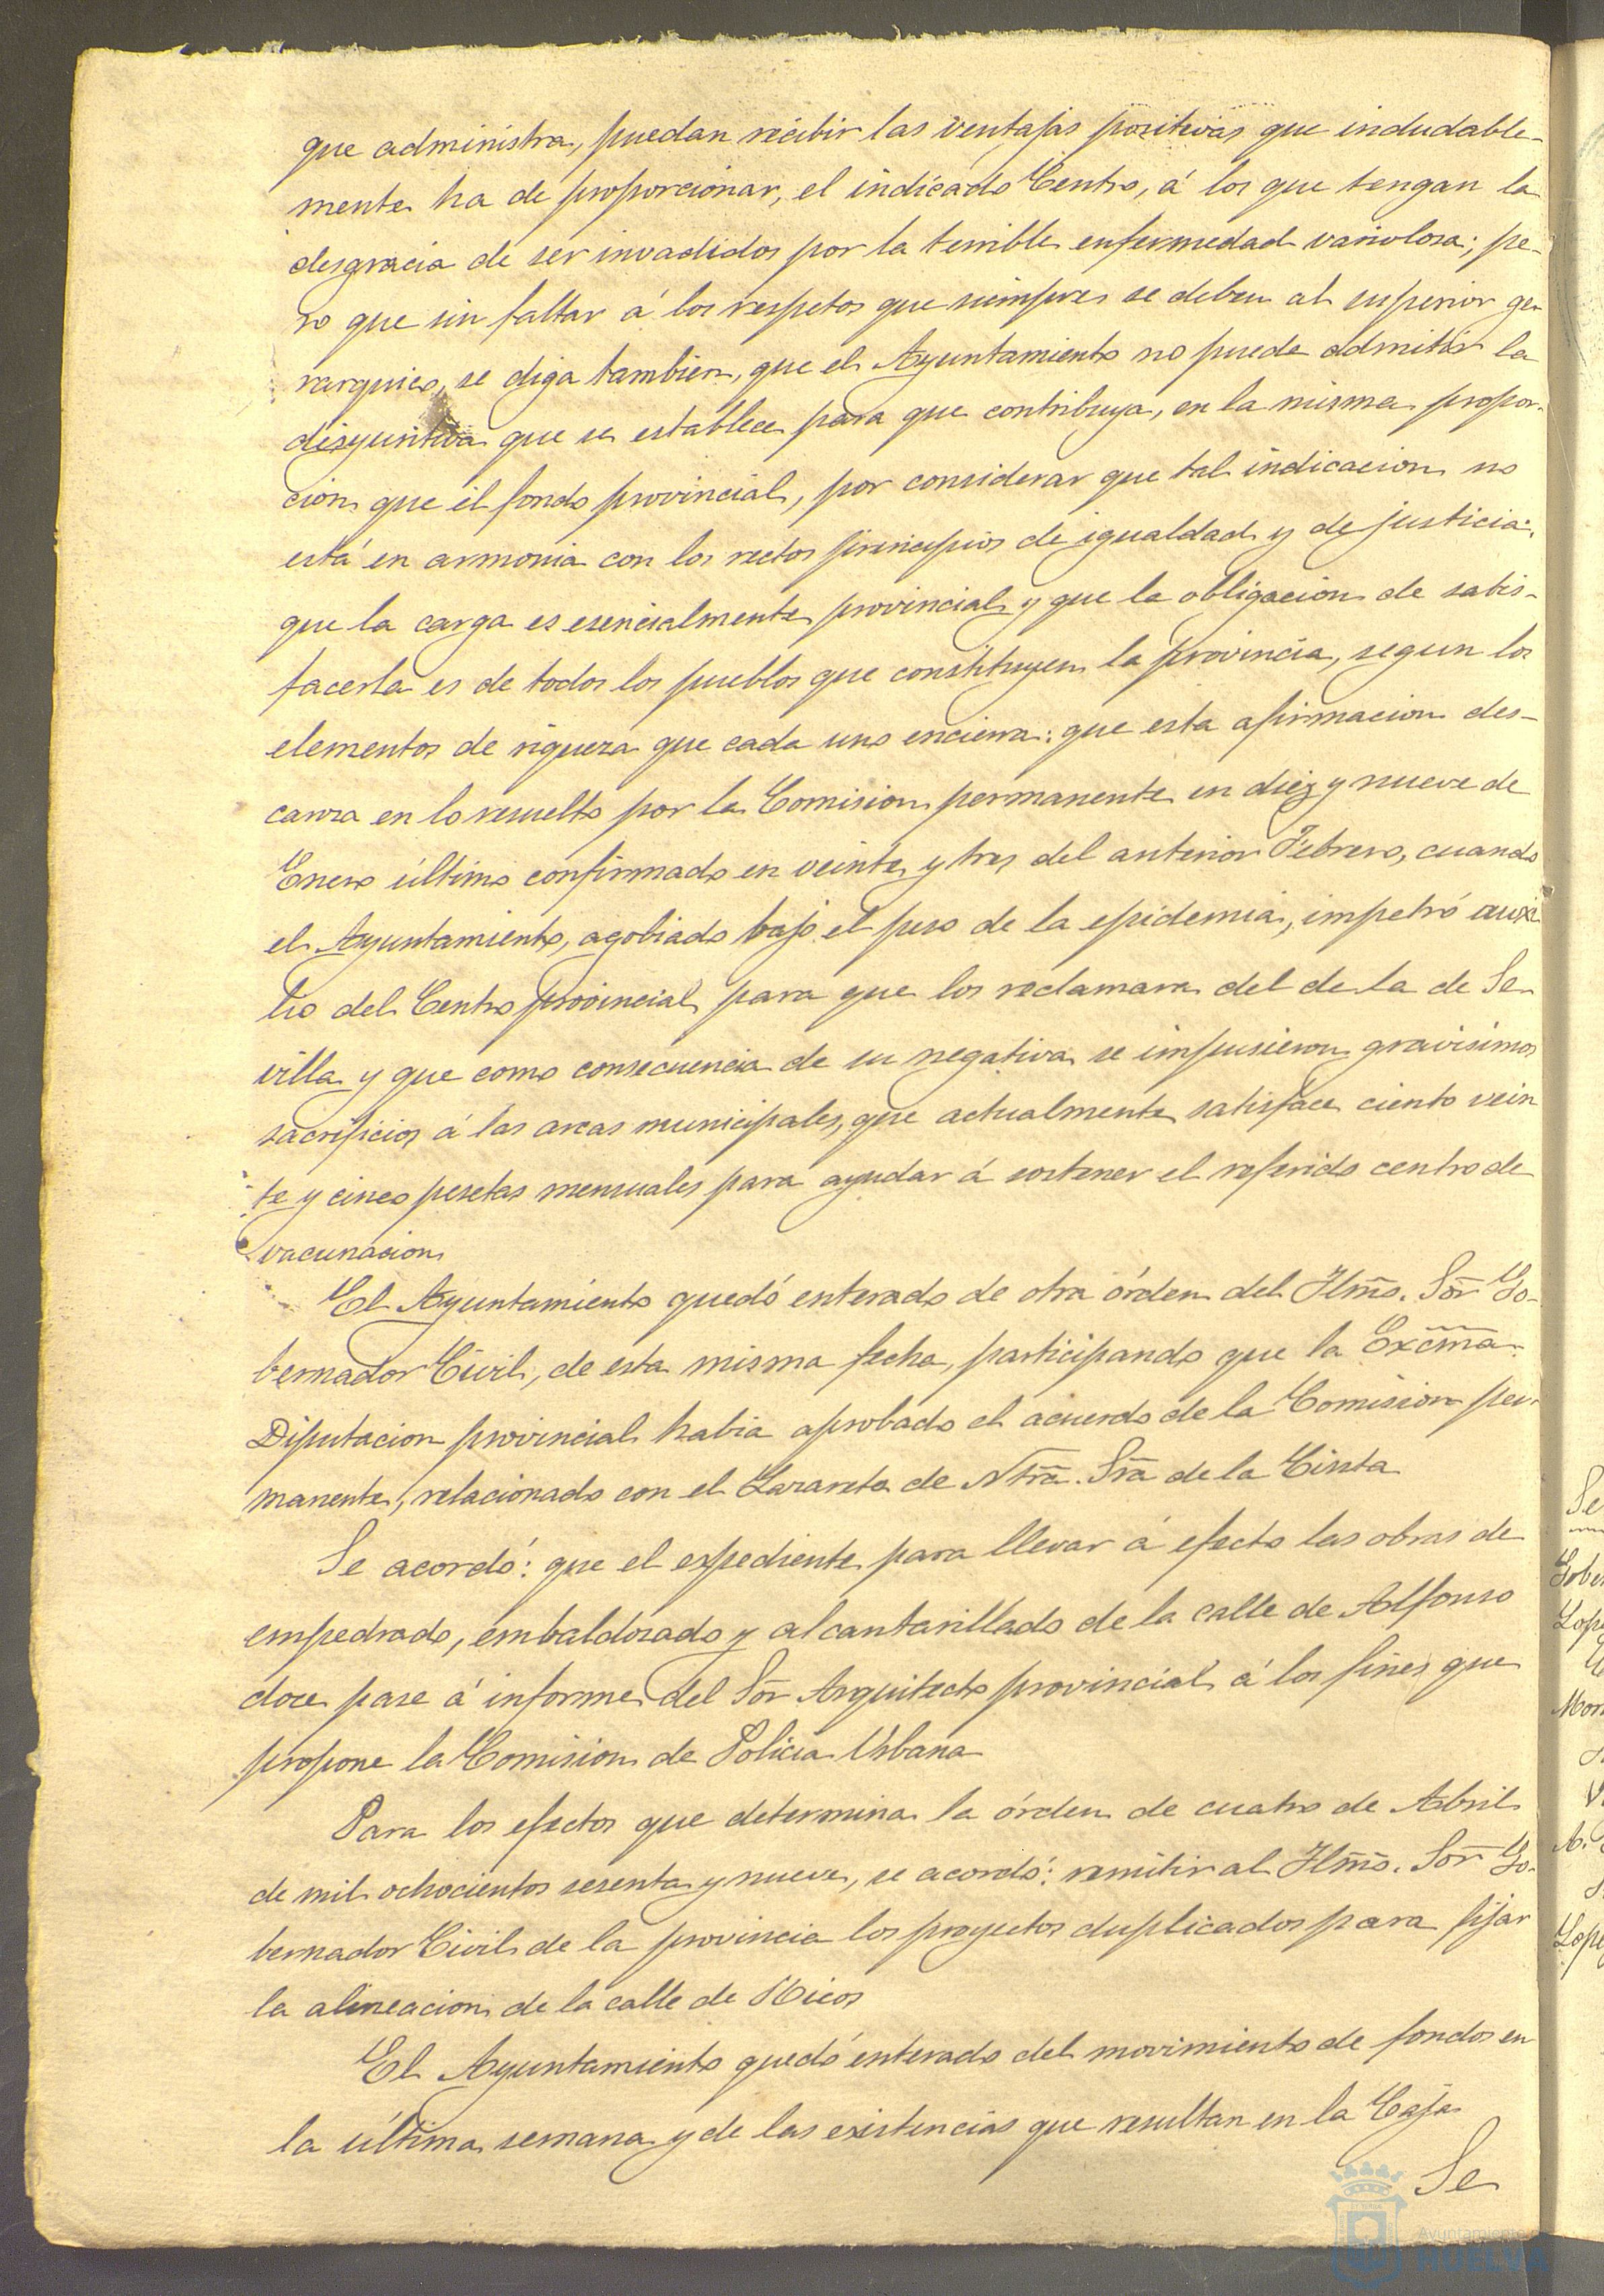 que administra, puedan recibir las ventajas positivas que indudable-
mente ha de proporcionar, el indicado Centro, á los que tengan la
desgracia de ser invadidos por la terrible enfermedad variolosa; pe-
ro que sin faltar á los respetos que siempre se deben al superior ge-
rarquico, se diga tambien, que el Ayuntamiento no puede admitir la
disyuntiva que se establece para que contribuya, en la misma propor-
cion que el fondo provincial, por considerar que tal indicacion no
está en armonia con los rectos principios de igualdad y de justicia:
que la carga es esencialmente provincial y que la obligacion de satis-
facerla es de todos los pueblos que constituyen la provincia, segun los
elementos de riqueza que cada uno encierra: que esta afirmacion des-
canza en lo resuelto por la Comision permanente en diez y nueve de
Enero último confirmado en veinte y tres del anterior Febrero, cuando
el Ayuntamiento, agobiado bajo el peso de la epidemia, impetró auxi
lio del Centro provincial para que los reclamara del de la de Se-
villa y que como consecuencia de su negativa se impusieron gravisimos
sacrificios á las arcas municipales, que actualmente satisface ciento vein
te y cinco pesetas mensuales para ayudar á sostener el referido centro de
vacunacion
El Ayuntamiento quedó enterado de otra órden del Ilmõ. Sõr Go-
bernador Civil, de esta misma fecha, participando que la Excm̃a.
Diputacion provincial habia aprobado el acuerdo de la Comision per-
manente, relacionado con el Lazareto de Ntrã. Srã de la Cinta
Se acordó: que el expediente para llevar á efecto las obras de
empedrado, embaldosado y alcantarillado de la calle de Alfonso
doce pase á informe del Sõr Arquitecto provincial á los fines que
propone la Comision de Policia Urbana
Para los efectos que determina la órden de cuatro de Abril
de mil ochocientos sesenta y nueve, se acordó: remitir al Ilmõ. Sõr Go-
bernador Civil de la provincia los proyectos duplicados para fijar
la alineacion de la calle de Ricos
El Ayuntamiento quedó enterado del movimiento de fondos en
la última semana y de las existencias que resultan en la Caja
Se
Ayuntamiento
HUELVA